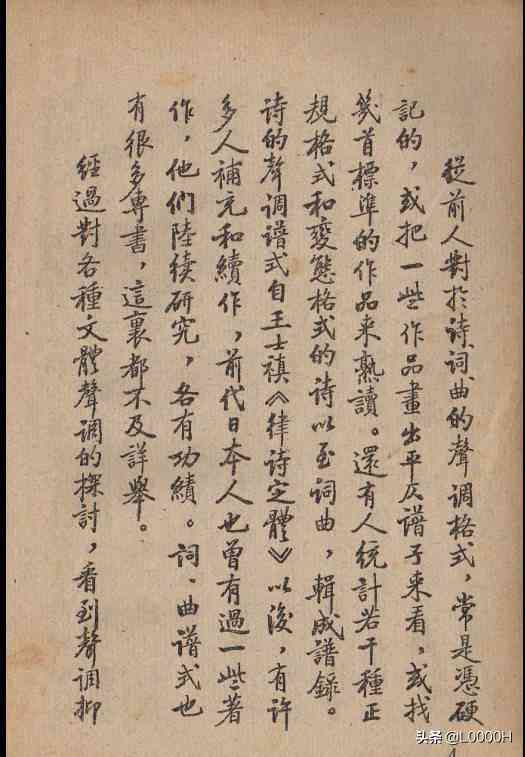 從前人對於詩詞曲的聲調格式，常是憑硬
記的，或把一些作品畫出平仄譜子來看，或找
幾首標準的作品来熟讀。還有人統計若干種正
規格式和變態格式的詩以至詞曲，輯成譜錄。
詩的聲調譜式自王士禛《律诗定體》以後，有許
多人補充和續作，前代日本人也曾有過一些著
作，他們陸续研究，各有功績。詞、曲譜式也
有很多專書，這裏都不及詳舉。
經過對各種文體聲調的探討，看到聲调抑
1
头条 @L0000H